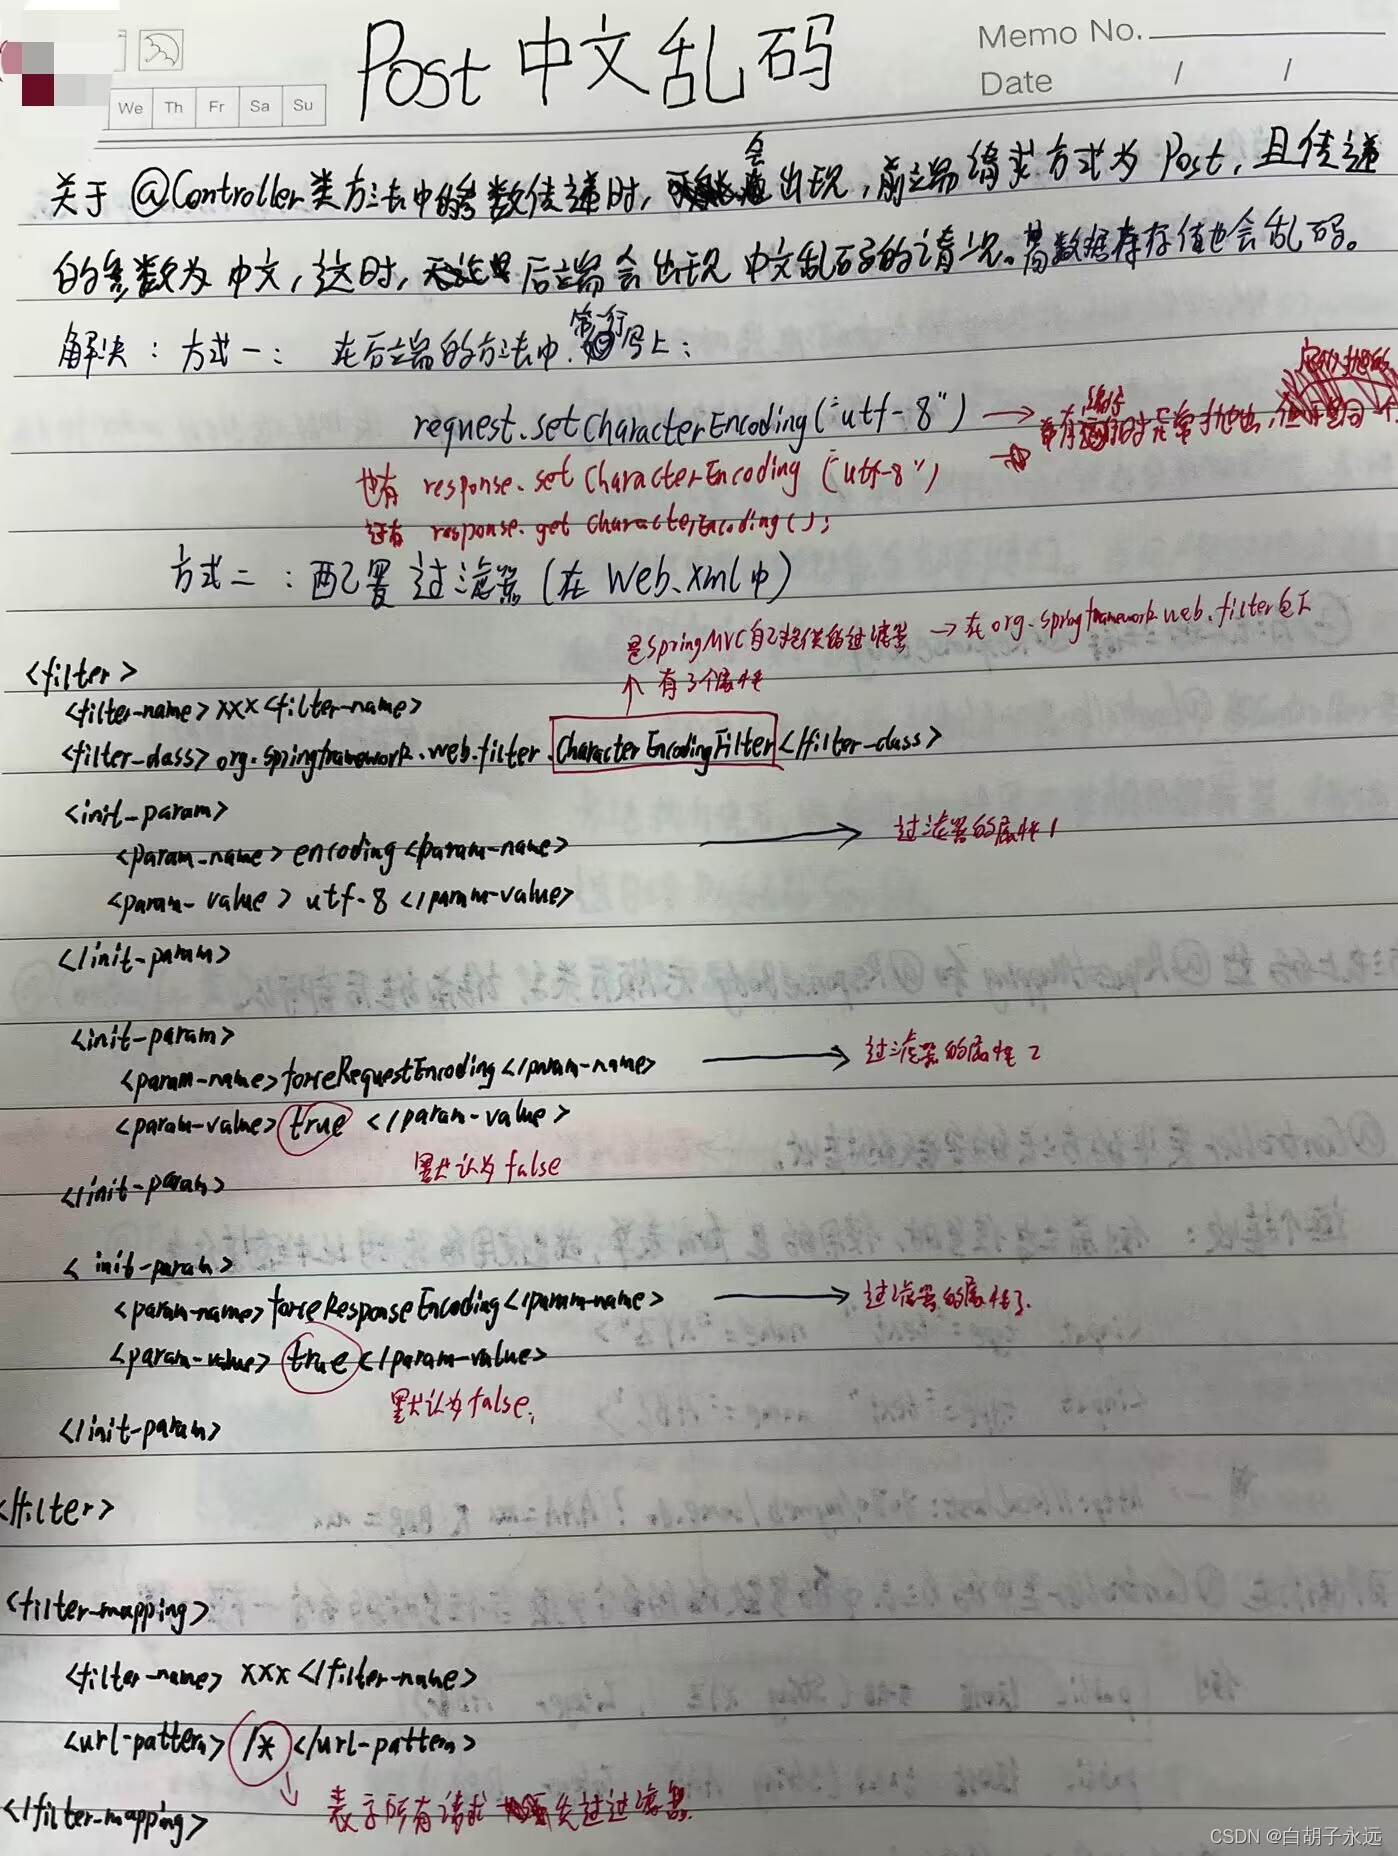 Memo No.
Date / /
We Th Fr Sa Su
Post 中文乱码
关于@Controller类方法中的参数传递时,会出现,前端请求方式为Post,且传递
的参数为中文,这时,后端会出现中文乱码的情况。数据库存值也会乱码。
解决:方式一: 在后端的方法中.第一行写上:
request.setCharacterEncoding("utf-8") →
也有 response.setCharacterEncoding ("utf-8")
还有 response.getCharacterEncoding();
方式二:配置过滤器(在Web.xml中)
是SpringMVC自己提供的过滤器 → 在org.springframework.web.filter包下
↑ 有3个属性
<filter>
<filter-name>xxx<filter-name>
<filter-class>org.springframework.web.filter.CharacterEncodingFilter</filter-class>
<init-param>
<param-name>encoding<param-name> → 过滤器的属性1
<param-value>utf-8</param-value>
</init-param>
<init-param>
<param-name>forceRequestEncoding</param-name> → 过滤器的属性2
<param-value>true</param-value>
默认为false
</init-param>
<init-param>
<param-name>forceResponseEncoding</param-name> → 过滤器的属性3.
<param-value>true</param-value>
默认为false;
</init-param>
</filter>
<filter-mapping>
<filter-name>xxx</filter-name>
<url-pattern>/*</url-pattern>
表示所有请求先过过滤器.
</filter-mapping>
CSDN @白胡子永远